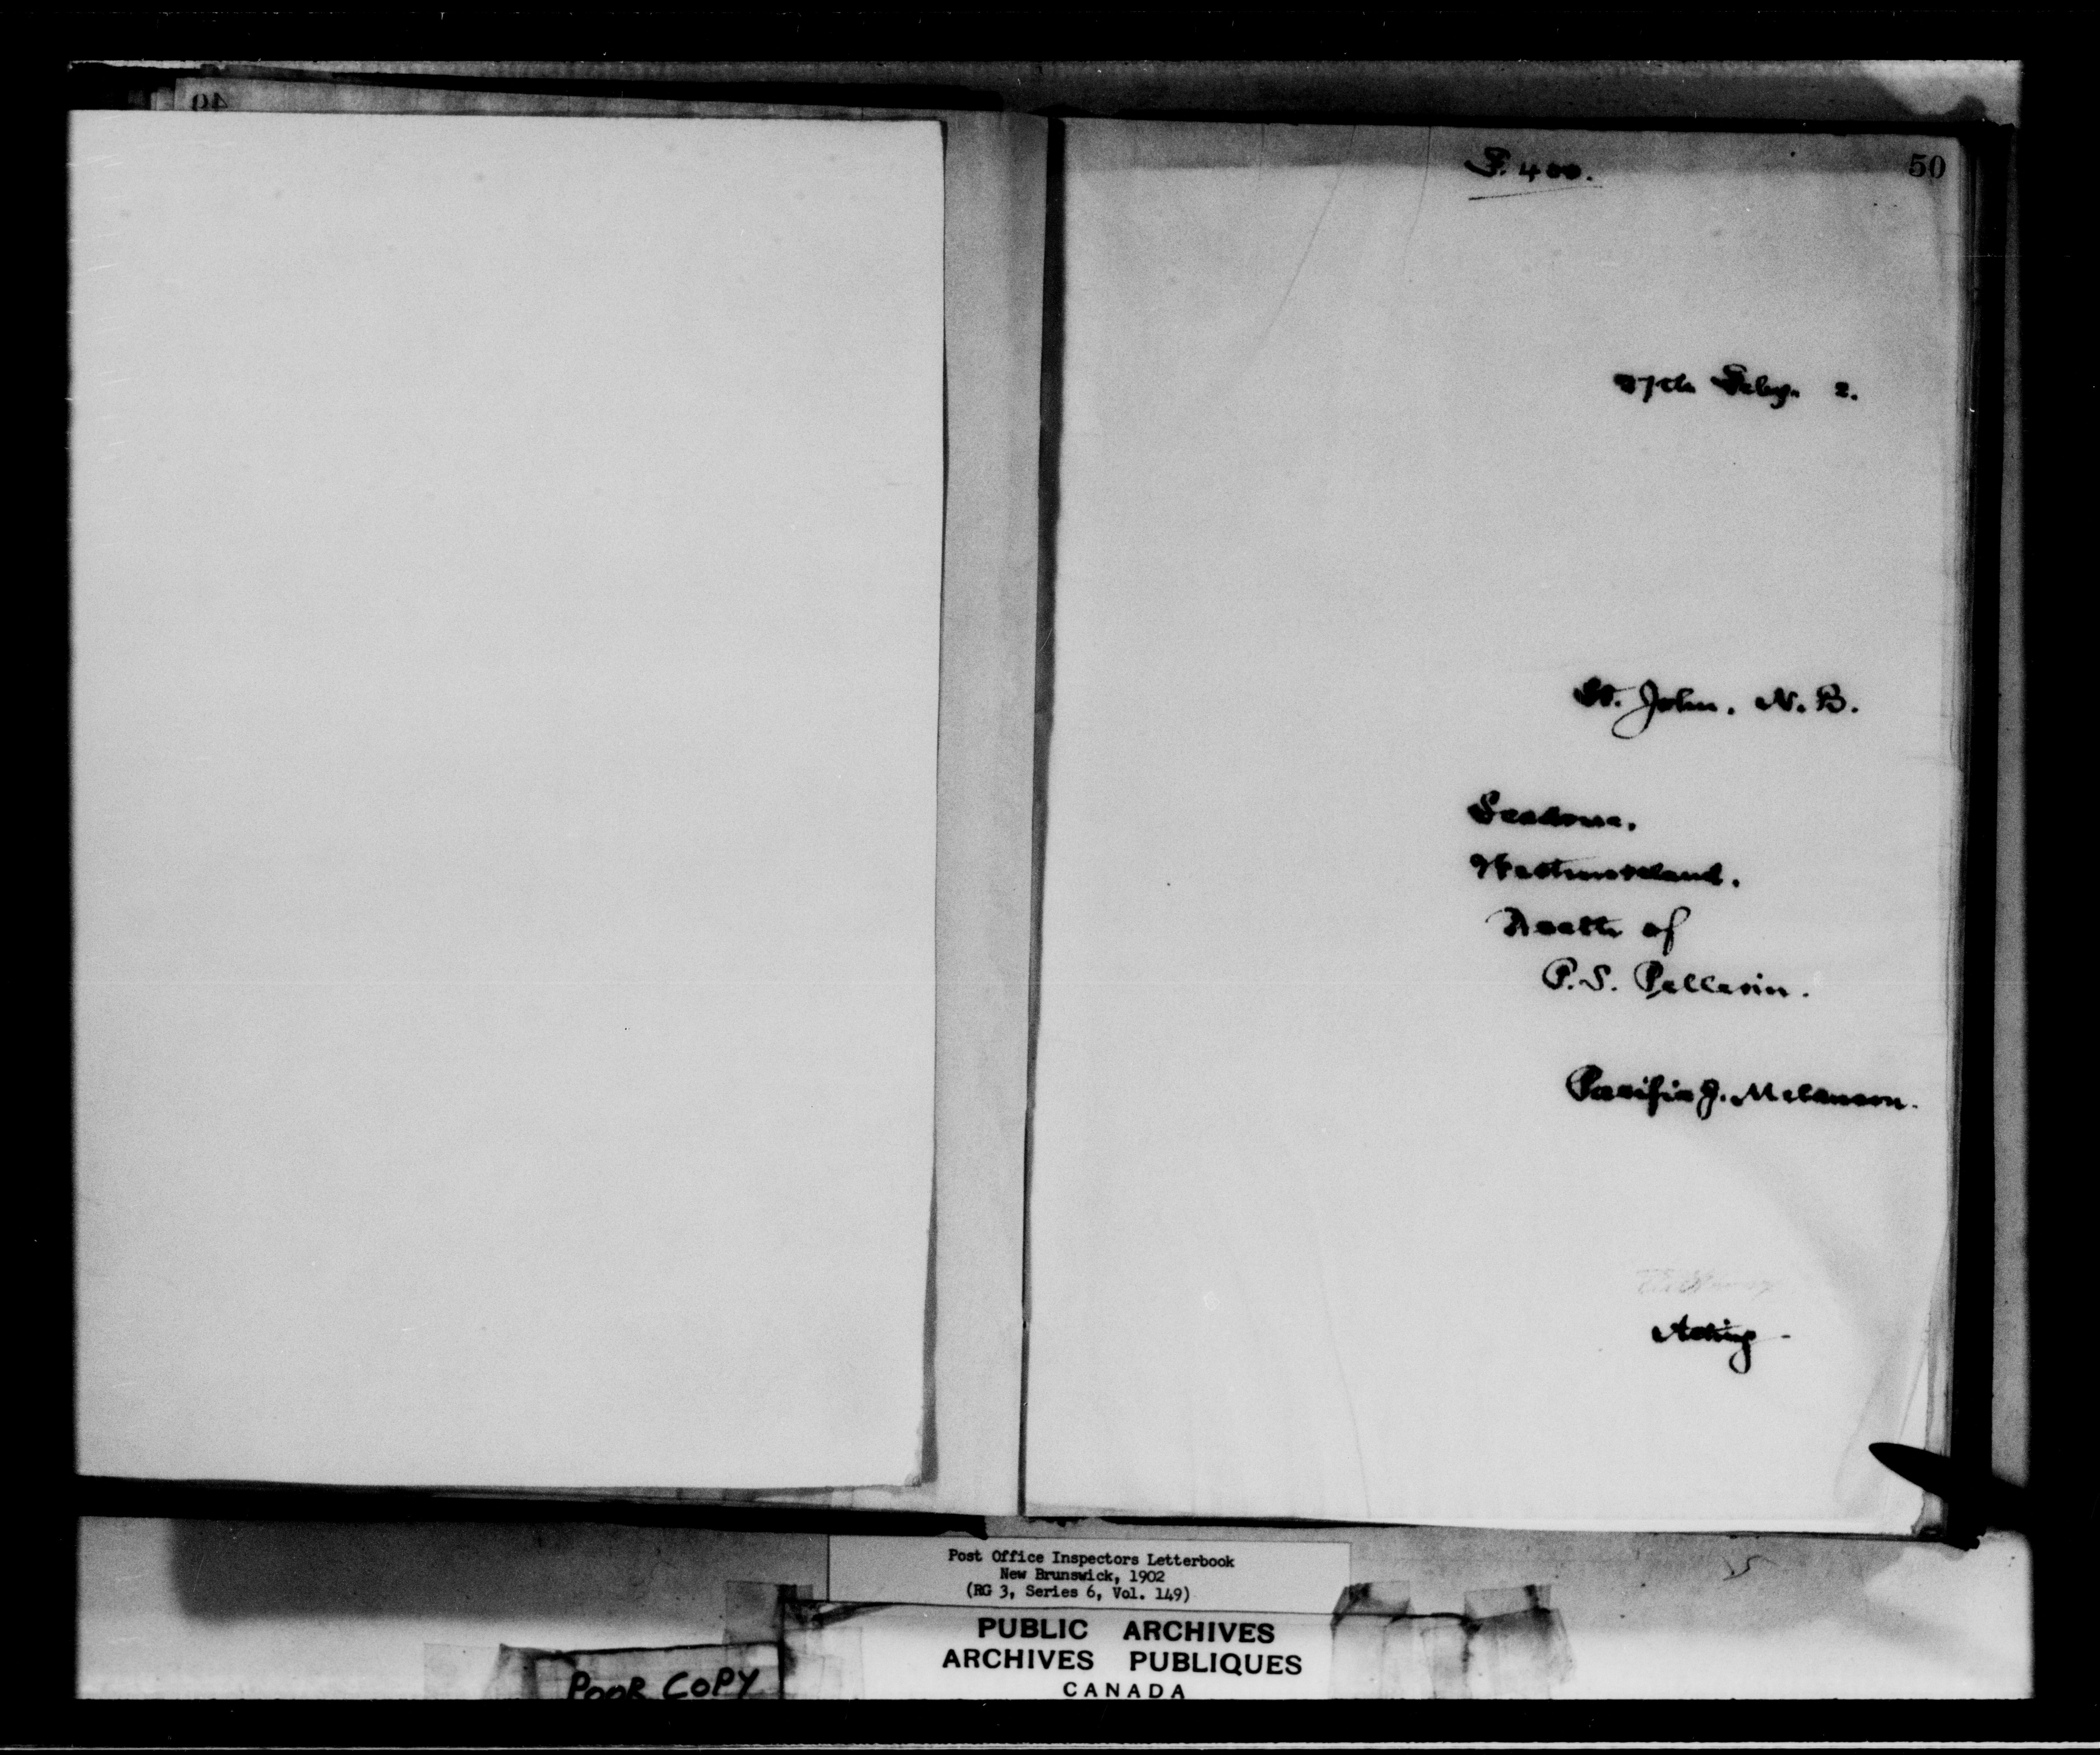 49
50
F. 400.
27th Feby. 2.
St. John. N. B.
Scadouc.
Westmoreland.
Death of
P. S. Pellerin.
Pacific J. Melanson.
Acting
Post Office Inspectors Letterbook
New Brunswick, 1902
(RG 3, Series 6, Vol. 149)
PUBLIC ARCHIVES
ARCHIVES PUBLIQUES
CANADA
POOR COPY